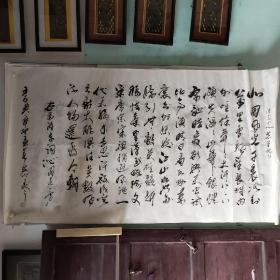 北国风光千里冰封
万里雪飘望长城内
外惟余莽莽大河上下
顿失滔滔山舞银蛇
原驰蜡象欲与天公试
比高须晴日看红装素裹
分外妖娆江山如此多
娇引无数英雄竞折
腰惜秦皇汉武略输文
采唐宗宋祖稍逊风骚一
代天骄成吉思汗只识弯
弓射大雕俱往矣数风
流人物还看今朝
毛泽东词沁园春雪